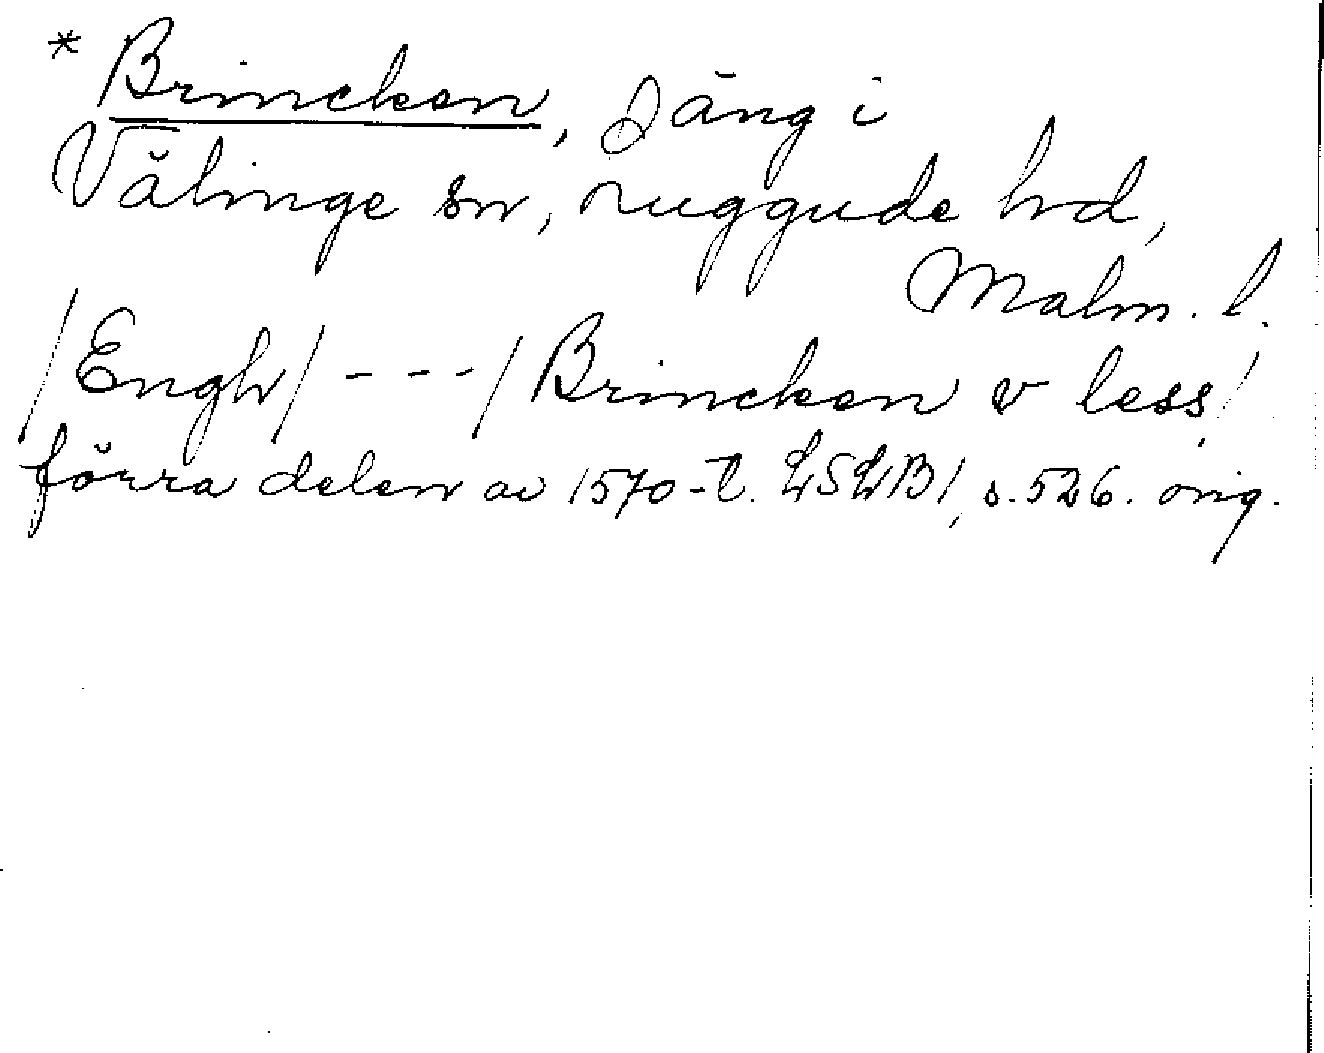 * Brincken, Jäng i
Välinge sn, Luggude hd,
Malm. l.
/Engh/ - - - / Brincken v less/
förra delen av 1570-t. LSLB1, s. 526. orig.